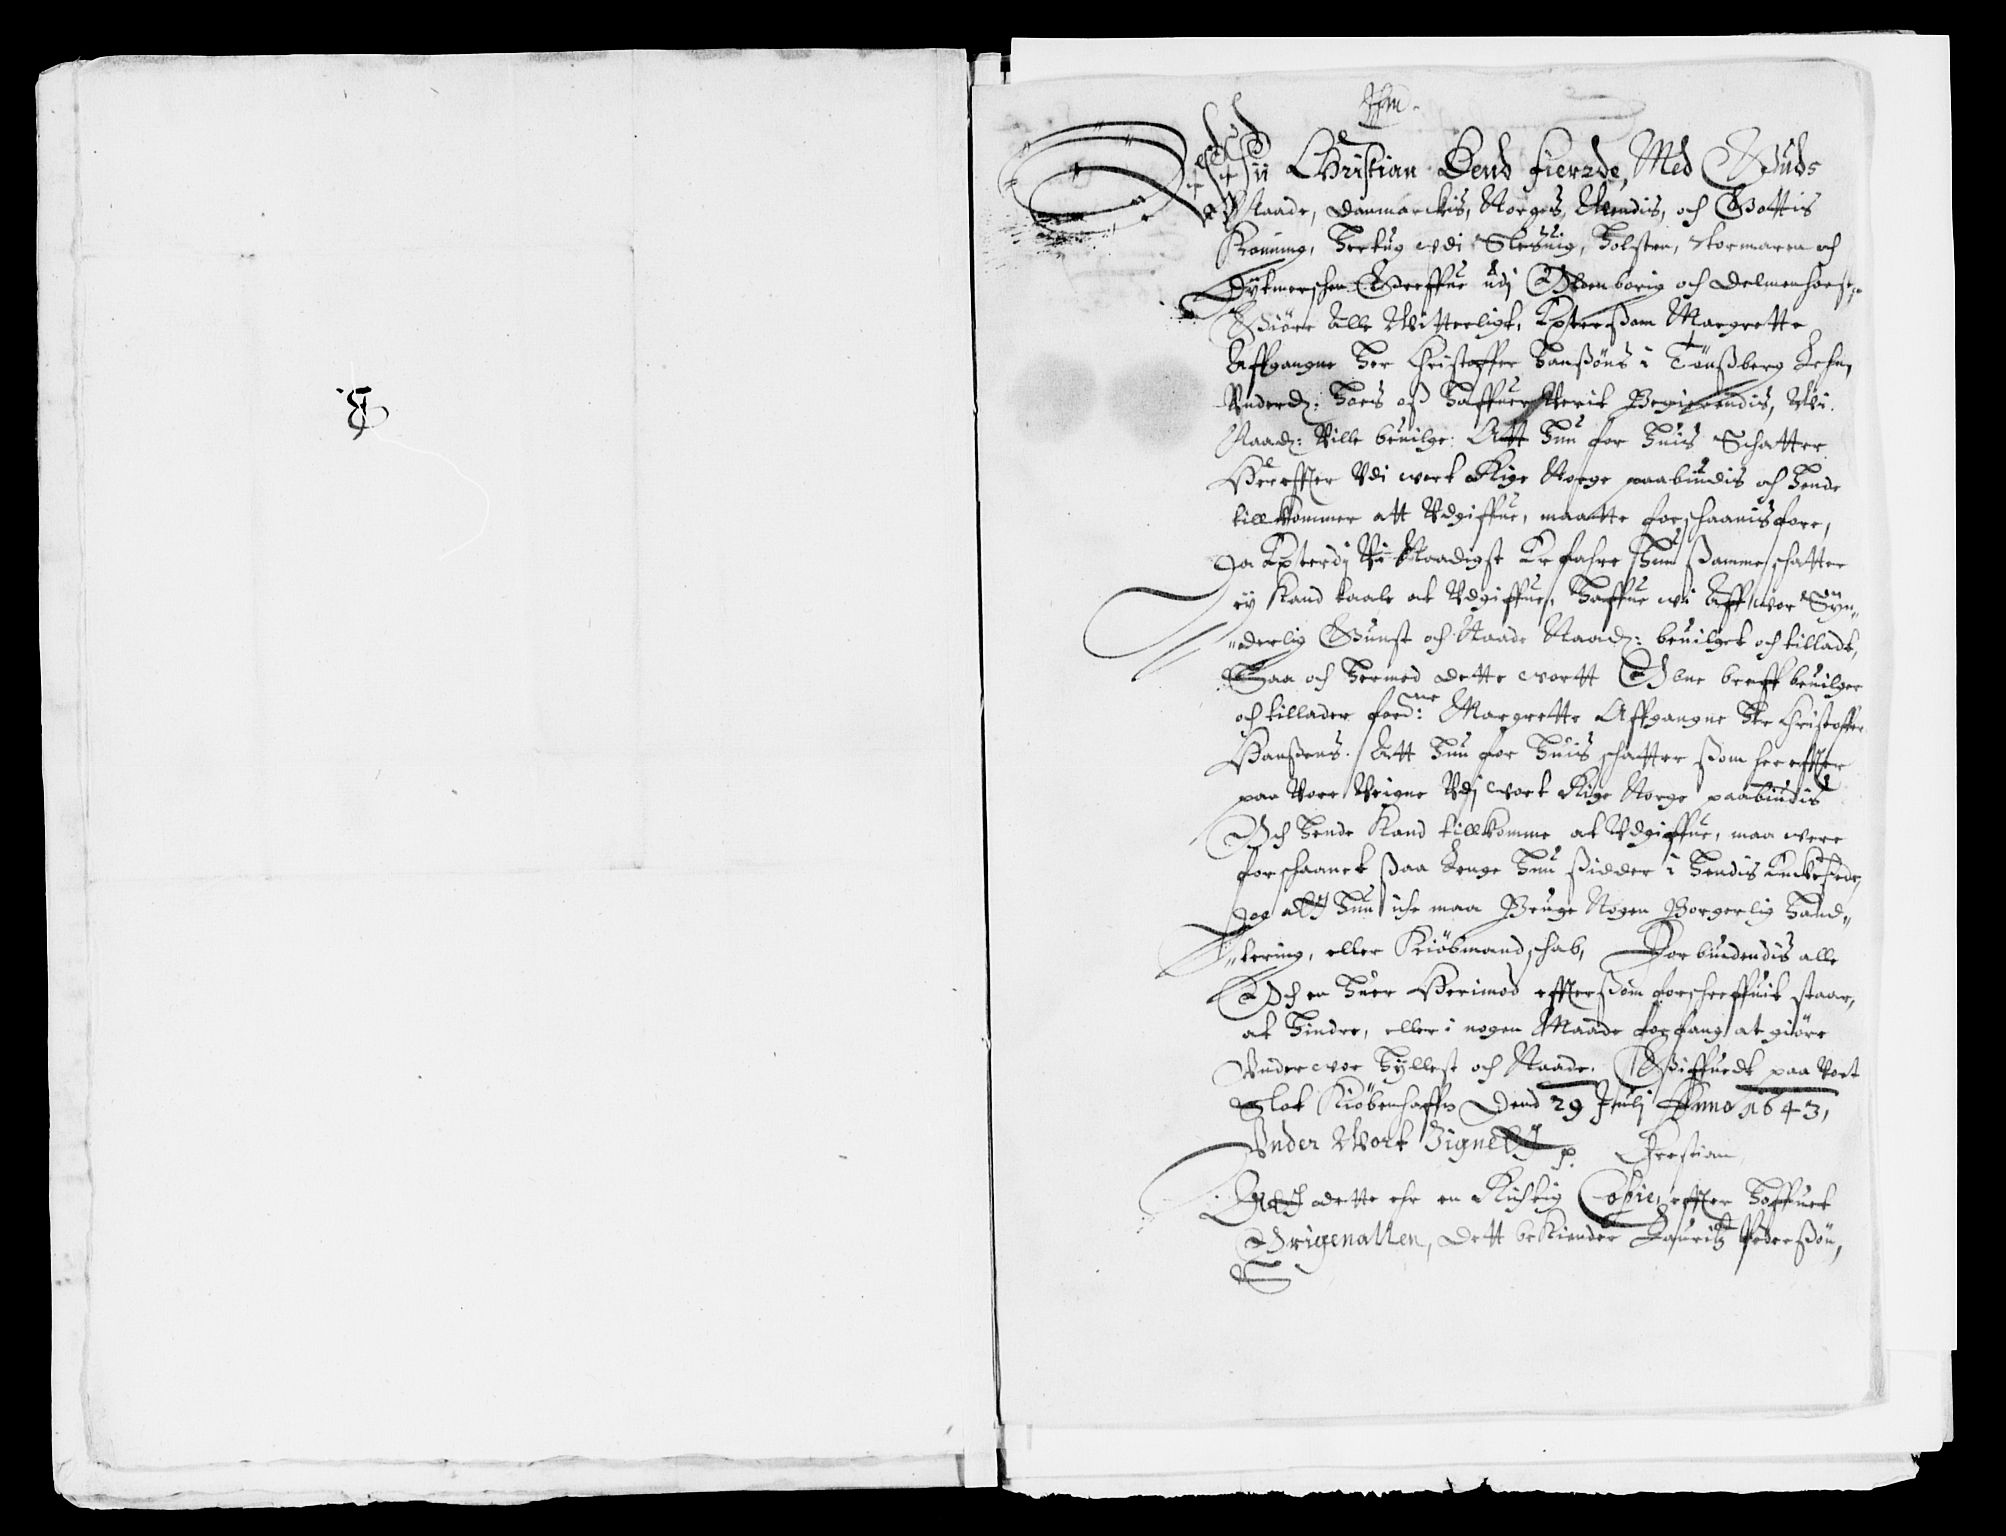 Wii Christian Dend fierrde, Med Guds
Naade, Danmarckis, Norges, Wendis, och Gottis
Konning, Hertug wdi Slesuig, Holsten, Stormaren och
Dytmerschen Greffue udj Oldenborig och Delmenhorst,
Giöre Alle Witterligt, Epterßom Margrette
Affgangne Her Christoffer Hanßöns i Tönßberg Lehn,
Underd: Hoes oß Haffuer Werit Begierendis, Wi
Naad: Wille beuilge: Att Hun for Huis Schatter
Hereffter Vdi wort Rige Norge paabiudis och Hende
tillkommer att Vdgiffue, maatte forschaanis fore,
Da Epterdj Wi Naadigst Erfahre Hun ßamme schatter
ey kand taale at Vdgiffue, Haffue wi Aff wor Syn„
„derlig Gunst och Naade Naad: beuilget och tilladt,
Saa och Hermed dette wortt Obne breff beuilger
och tillader ford:ne Margrette Affgangne Her Christoffer
Hanßens. Att Hun for Huis schatter ßom hereffter
paa Vore Veigne Vdj wort Rige Norge paabiudis
Och Hende kand tillkomme at Vdgiffue, maa were
forschaanet ßaa Lenge Hun ßidder i Hendis Enckesede,
Dog att Hun iche maa Bruge Nogen Borgerlig Hand„
„tering, eller Kiöbmandschab, Forbiudendis alle
Och en Huer Herimod effterßom forschreffuit staar,
at Hindre, eller i nogen Maade forfang at giöre
Vnder wor Hyllest och Naade. Giffuedt paa Vort
Slot Kiöbenhaffn Dend 29 Julj Anno 1643,
Vnder Wort Zignett p. Christian
Att dette ehr en Richtig Copie, effter Hoffuet
Origenallen, Dett bekiender Lauritz Pederßön,